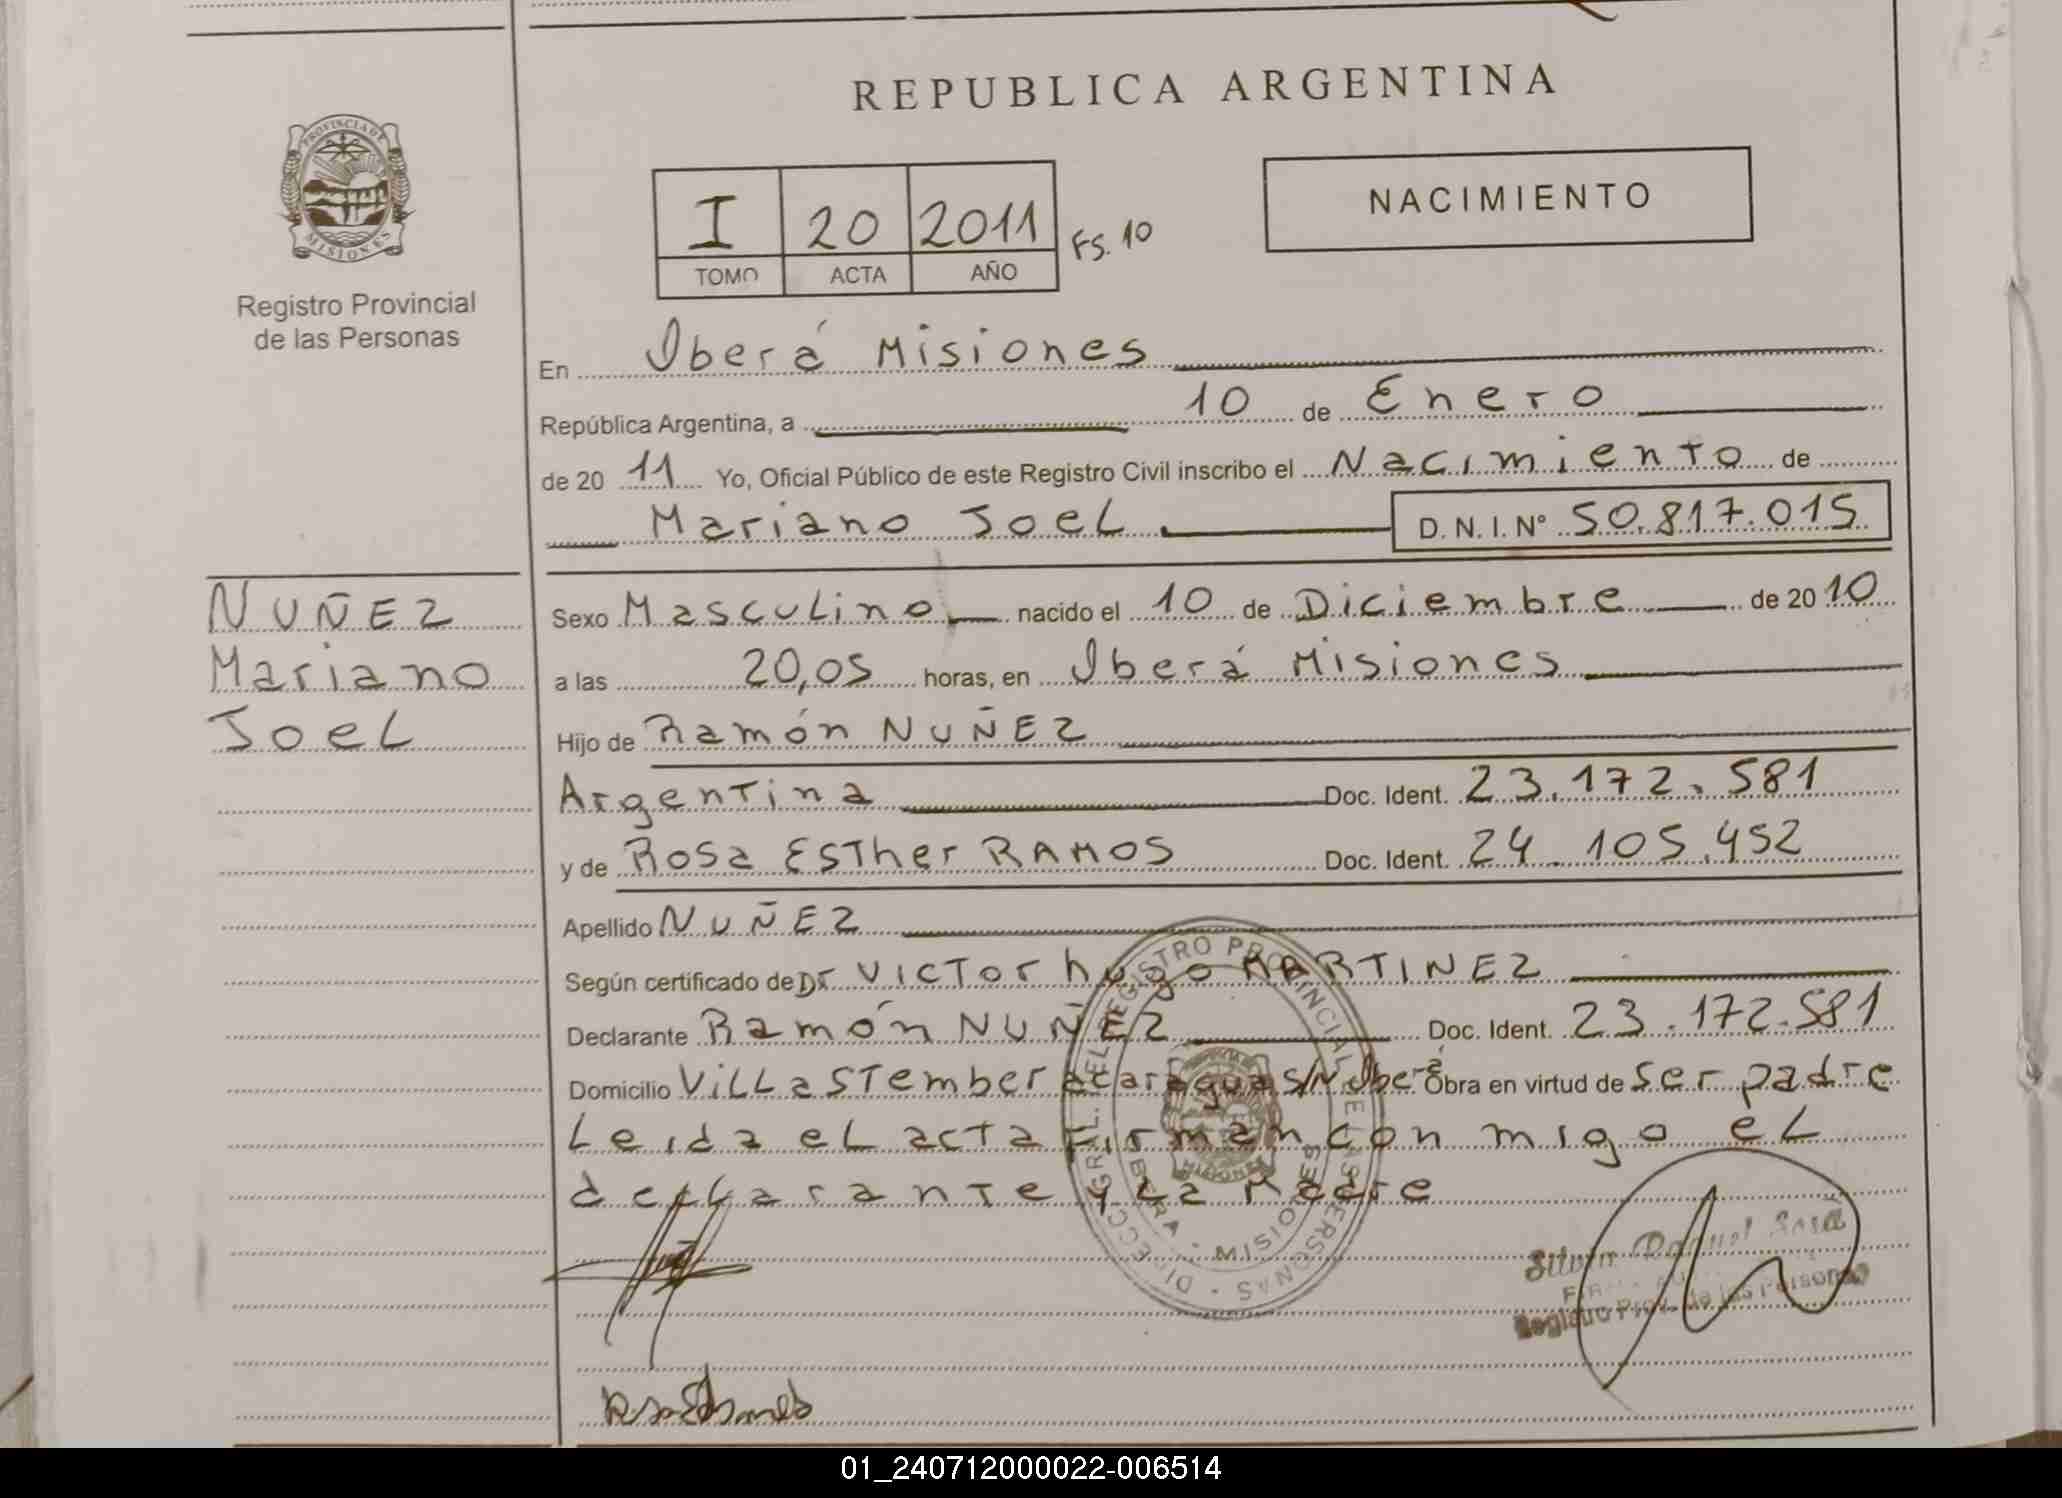 REPUBLICA ARGENTINA
PROVINCIA DE
MISIONES
Registro Provincial
de las Personas
I 20 2011 FS. 10
TOMO ACTA AÑO
NACIMIENTO
En Iberá Misiones
República Argentina, a 10 de Enero
de 20 11 Yo, Oficial Público de este Registro Civil inscribo el Nacimiento de
Mariano Joel D. N. I. Nº 50.817.015
NUÑEZ
Mariano
Joel
Sexo Masculino nacido el 10 de Diciembre de 20 10
a las 20,05 horas, en Iberá Misiones
Hijo de Ramón NUÑEZ
Argentina Doc. Ident. 23.172.581
y de Rosa Esther RAMOS Doc. Ident. 24.105.452
Apellido NUÑEZ
Según certificado de Dr Victor hugo MARTINEZ
Declarante Ramón NUÑEZ Doc. Ident. 23.172.581
Domicilio Villa Stember acaragua S/N Iberá Obra en virtud de ser padre
Leida el acta firman con migo el
declarante y la Madre
DIRECC. GRAL. DEL REGISTRO PROVINCIAL DE LAS PERSONAS
IBERA - MISIONES
MISIONES
Raquel Sosa
Registro Prov. de las Personas
01_240712000022-006514